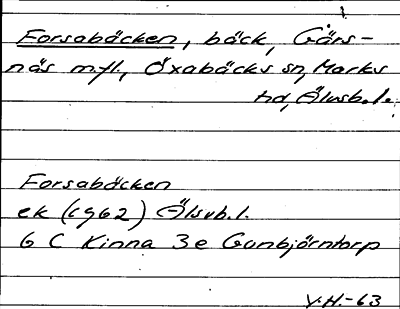 Forsabäcken, bäck, Gärs-
näs m.fl., Öxabäcks sn, Marks
hd, Älvsb. l.
Forsabäcken
ek (1962) Älsvb. l.
6 C Kinna 3e Gunbjörntorp
V.H.-63